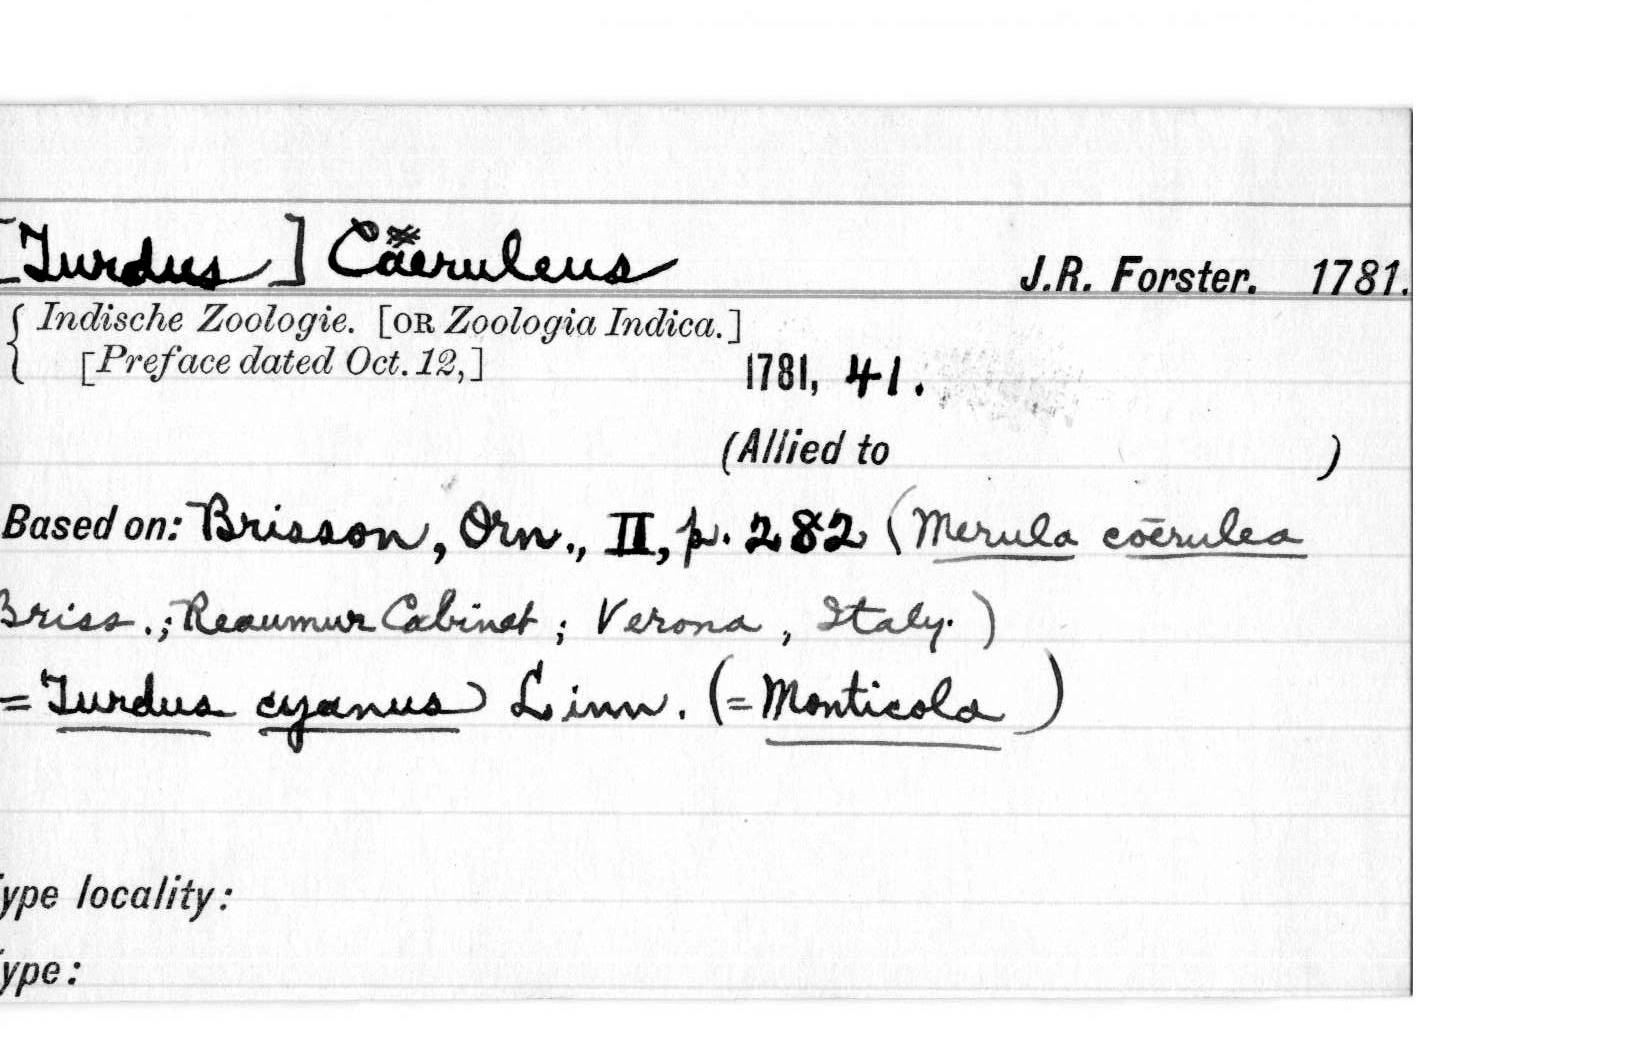 [Turdus] Cäeruleus J.R. Forster. 1781.
Indische Zoologie. [OR Zoologia Indica.]
[Preface dated Oct. 12,] 1781, 41.
(Allied to )
Based on: Brisson, Orn., II, p. 282 (Merula cōerulea
Briss.; Reaumur Cabinet; Verona, Italy.)
= Turdus cyanus Linn. (= Monticola )
ype locality:
ype: